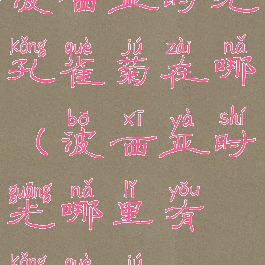 kǒng què jú zài nǎ
孔雀菊在哪
bō xī yà shí
（波西亚时
guāng nǎ lǐ yǒu
光哪里有
kǒng què jú